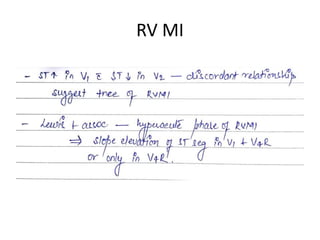 RV MI
- ST↑ in V1 c̄ ST↓ in V2 — discordant relationship
suggest of RVMI
- Lewis + assoc — hyperacute phase of RVMI
⇒ slope elevation of ST seg in V1 + V4R
or only in V4R.